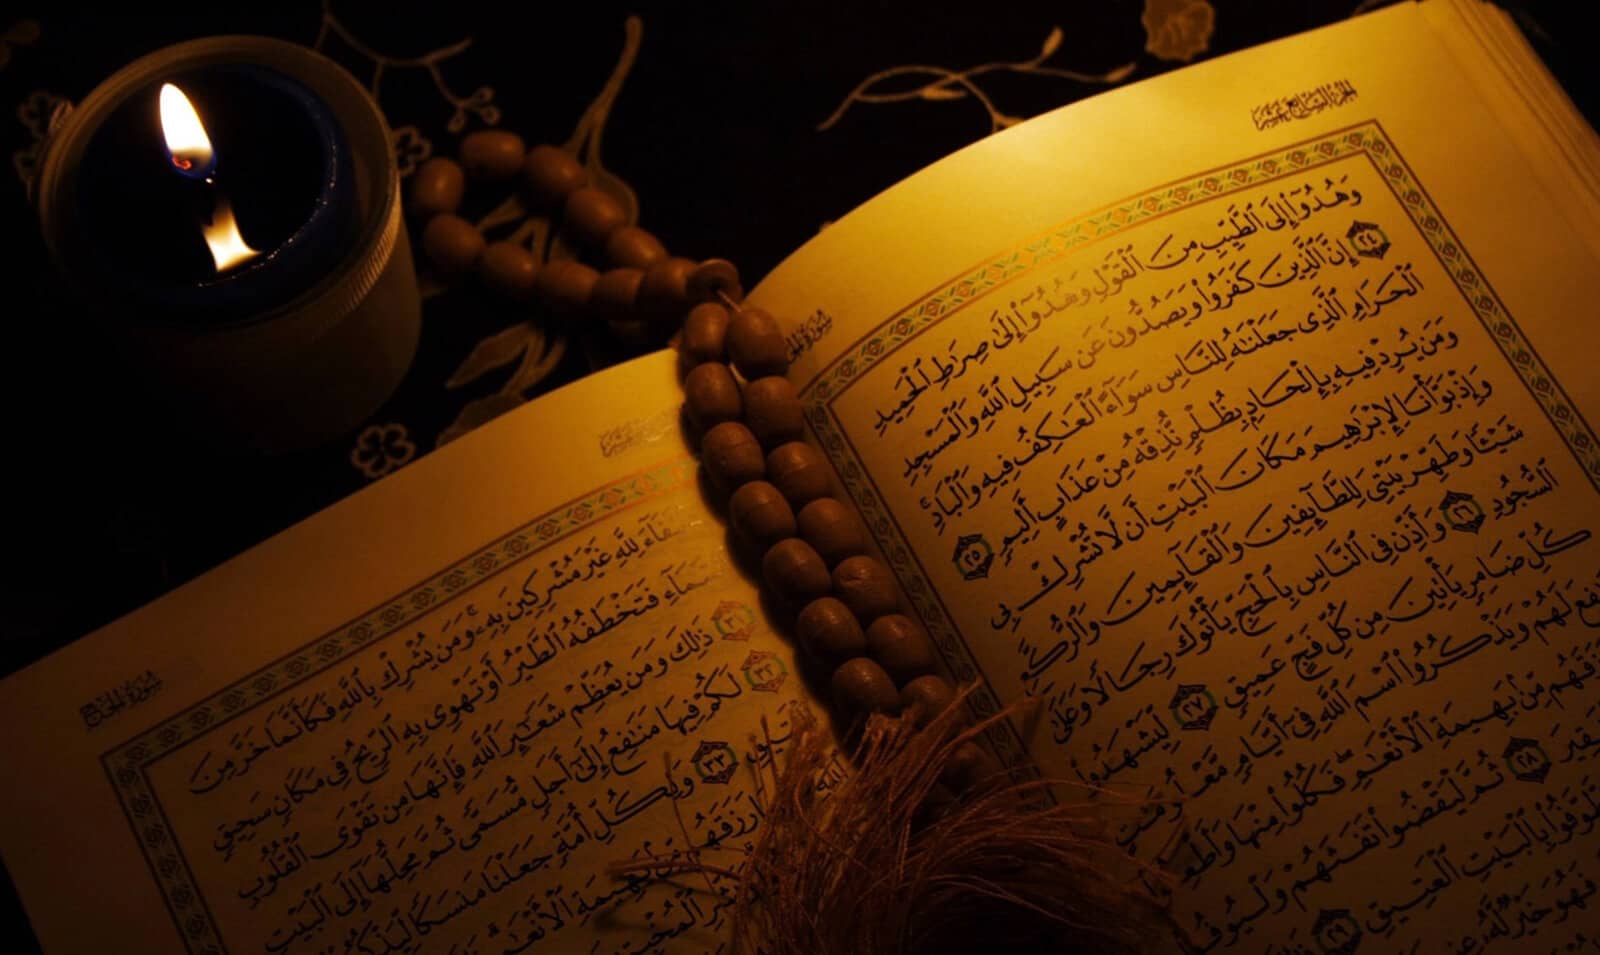 الجزء السابع عشر
وَهُدُوٓا۟ إِلَى ٱلطَّيِّبِ مِنَ ٱلْقَوْلِ وَهُدُوٓا۟ إِلَىٰ صِرَٰطِ ٱلْحَمِيدِ
٢٤ إِنَّ ٱلَّذِينَ كَفَرُوا۟ وَيَصُدُّونَ عَن سَبِيلِ ٱللَّهِ وَٱلْمَسْجِدِ
ٱلْحَرَامِ ٱلَّذِى جَعَلْنَٰهُ لِلنَّاسِ سَوَآءً ٱلْعَٰكِفُ فِيهِ وَٱلْبَادِ ۚ
وَمَن يُرِدْ فِيهِ بِإِلْحَادٍۭ بِظُلْمٍ نُّذِقْهُ مِنْ عَذَابٍ أَلِيمٍ ٢٥
وَإِذْ بَوَّأْنَا لِإِبْرَٰهِيمَ مَكَانَ ٱلْبَيْتِ أَن لَّا تُشْرِكْ بِى
شَيْـًٔا وَطَهِّرْ بَيْتِىَ لِلطَّآئِفِينَ وَٱلْقَآئِمِينَ وَٱلرُّكَّعِ
ٱلسُّجُودِ ٢٦ وَأَذِّن فِى ٱلنَّاسِ بِٱلْحَجِّ يَأْتُوكَ رِجَالًا وَعَلَىٰ
كُلِّ ضَامِرٍ يَأْتِينَ مِن كُلِّ فَجٍّ عَمِيقٍ ٢٧ لِّيَشْهَدُوا۟
لَهُمْ وَيَذْكُرُوا۟ ٱسْمَ ٱللَّهِ فِىٓ أَيَّامٍ
مِّنۢ بَهِيمَةِ ٱلْأَنْعَٰمِ ۖ فَكُلُوا۟ مِنْهَا
٢٨ ثُمَّ لْيَقْضُوا۟ تَفَثَهُمْ
بِٱلْبَيْتِ ٱلْعَتِيقِ ٢٩
فَهُوَ خَيْرٌ لَّهُۥ
سورة الحج
لِلَّهِ غَيْرَ مُشْرِكِينَ بِهِۦ ۚ وَمَن يُشْرِكْ بِٱللَّهِ فَكَأَنَّمَا خَرَّ مِنَ
فَتَخْطَفُهُ ٱلطَّيْرُ أَوْ تَهْوِى بِهِ ٱلرِّيحُ فِى مَكَانٍ سَحِيقٍ
٣١ ذَٰلِكَ وَمَن يُعَظِّمْ شَعَٰٓئِرَ ٱللَّهِ فَإِنَّهَا مِن تَقْوَى ٱلْقُلُوبِ
٣٢ لَكُمْ فِيهَا مَنَٰفِعُ إِلَىٰٓ أَجَلٍ مُّسَمًّى ثُمَّ مَحِلُّهَآ إِلَى ٱلْبَيْتِ
٣٣ وَلِكُلِّ أُمَّةٍ جَعَلْنَا مَنسَكًا لِّيَذْكُرُوا۟
بَهِيمَةِ ٱلْأَنْعَٰمِ